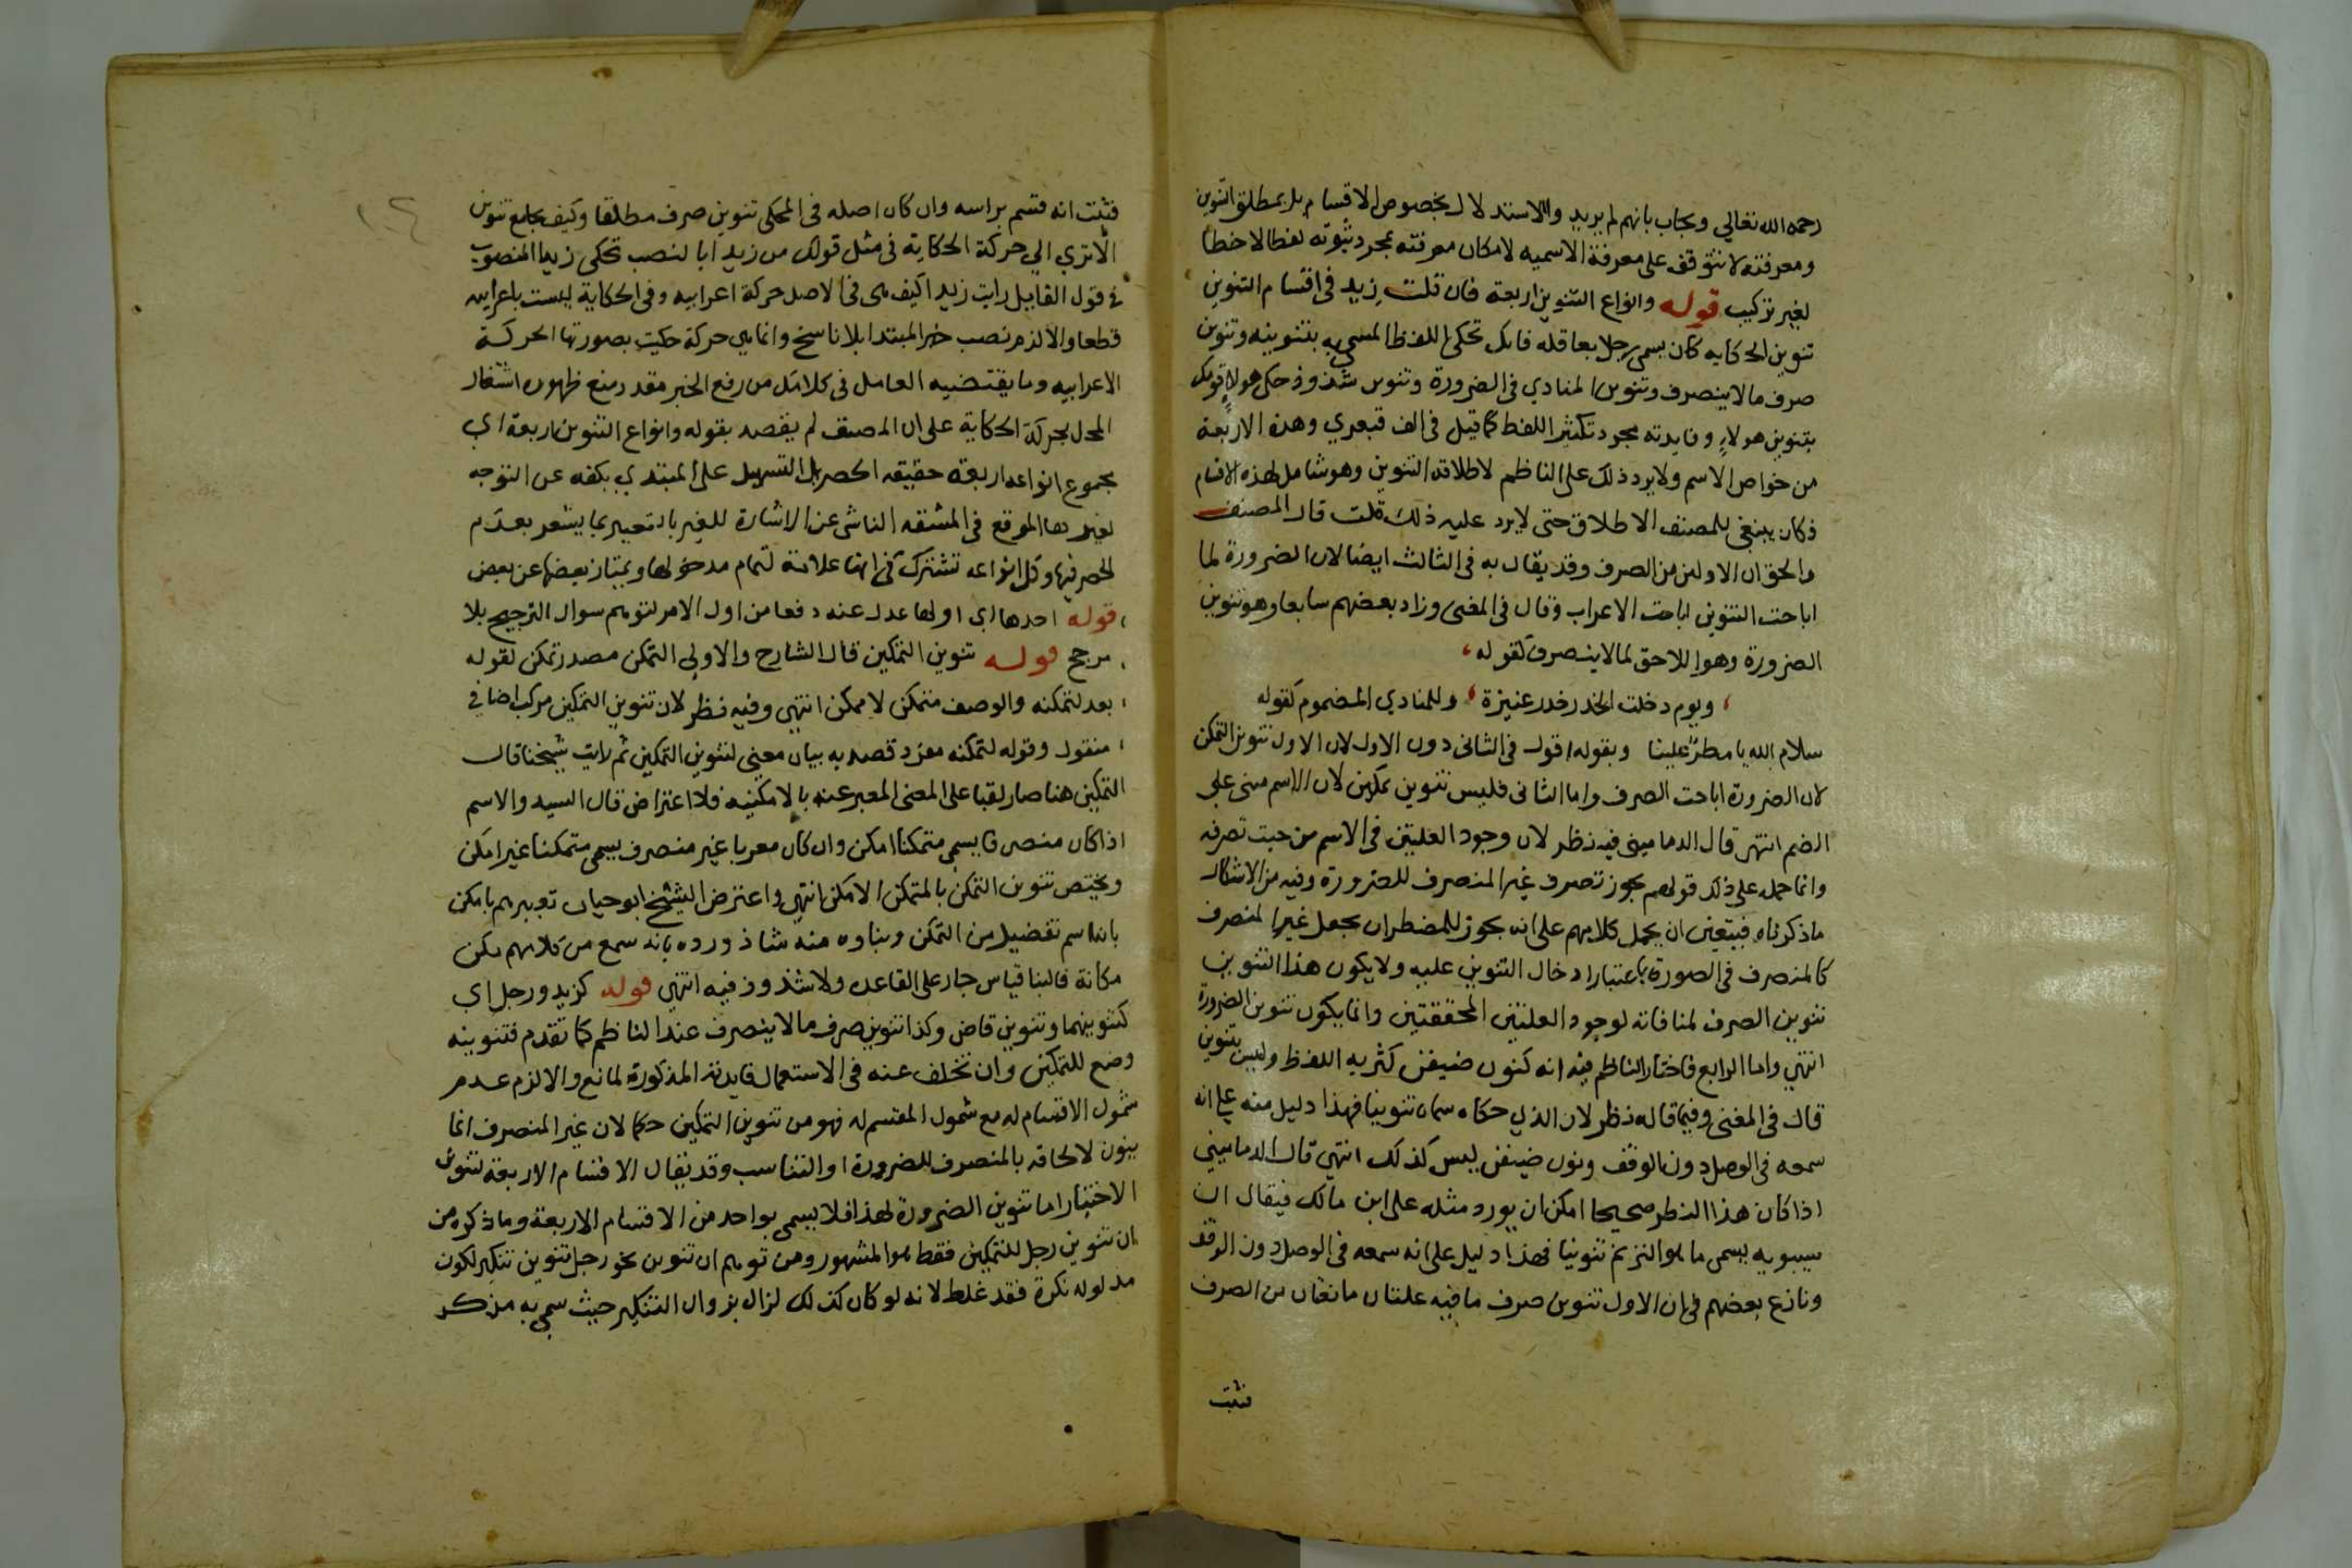 رحمه الله تعالي ويجاب بانهم لم يريدوا الاستدلال بخصوص الاقسام بل بمطلق التنوين
ومعرفته لا تتوقف على معرفة الاسميه لامكان معرفته بمجرد ثبوته لفظا لاخطا
لغير تركيب قوله وانواع التنوين اربعة فان قلت زيد في اقسام التنوين
تنوين الحكايه كان يسمى رجل بعاقله فانك تحكى اللفظ المسمى به بتنوينه وتنوين
صرف ما لا ينصرف وتنوين المنادي فى الضرورة وتنوين شذوذ حكى هولاءٍ قومك
بتنوين هولاءٍ وفايدته مجرد تكثير اللفظ كما قيل فى الف قبعثري وهذه الاربعة
من خواص الاسم ولا يرد ذلك على الناظم لاطلاقه التنوين وهو شامل لهذه الاقسام
فكان ينبغي للمصنف الاطلاق حتى لا يرد عليه ذلك قلت قال المصنف
والحق ان الاولين من الصرف وقد يقال به فى الثالث ايضا لان الضرورة لما
اباحت التنوين اباحت الاعراب وقال فى المغنى وزاد بعضهم سابعا وهو تنوين
الضرورة وهو اللاحق لما لا ينصرف كقوله
ويوم دخلت الخدر خدر عنيزة وللمنادي المضموم كقوله
سلام الله يا مطرٌ علينا وبقوله اقول فى الثانى دون الاول لان الاول تنوين التمكن
لان الضرورة اباحت الصرف واما الثانى فليس تنوين تمكين لان الاسم مبنى على
الضم انتهى قال الدمامينى فيه نظر لان وجود العلتين فى الاسم من حيث تصرفه
وانما حمله على ذلك قولهم يجوز تصرف غير المنصرف للضرورة وفيه من الاشكال
ما ذكرناه فيتعين ان يحمل كلامهم على انه يجوز للمضطر ان يجعل غير المنصرف
كالمنصرف فى الصورة باعتبار ادخال التنوين عليه ولا يكون هذا التنوين
تنوين الصرف لمنافاته لوجود العلتين المحققتين وانما يكون تنوين الضرورة
انتهي واما الرابع فاختار الناظم فيه انه كنون ضيفن كثر به اللفظ وليس بتنوين
قال فى المغنى وفيما قاله نظر لان الذي حكاه سماه تنوينا فهذا دليل منه على انه
سمعه فى الوصل دون الوقف ونون ضيفن ليس كذلك انتهي قال الدمامينى
اذا كان هذا النظر صحيحا امكن ان يورد مثله على ابن مالك فيقال ان
سيبويه يسمى ما هو الترنم تنوينا فهذا دليل على انه سمعه فى الوصل دون الوقف
ونازع بعضهم فى ان الاول تنوين صرف ما فيه علتان مانعتان من الصرف
فثبت
١٠٢
فثبت انه قسم براسه وان كان اصله فى المحكى تنوين صرف مطلقا وكيف يجامع تنوين
الا تري الي حركة الحكاية فى مثل قولك من زيدا بالنصب تحكى زيدا المنصوب
فى قول القايل رايت زيدا كيف هى فى الاصل حركة اعرابيه وفى الحكاية ليست باعرابيه
قطعا والا لزم نصب خبر المبتدا بلا ناسخ وانما هي حركة حكيت بصورتها الحركة
الاعرابيه وما يقتضيه العامل فى كلامك من رفع الخبر مقدر منع ظهوره اشتغال
المحل بحركة الحكاية على ان المصنف لم يقصد بقوله وانواع التنوين اربعة اي
مجموع انواعه اربعة حقيقه الحصر بل التسهيل على المبتدي بكفه عن التوجه
لغيرها الموقع فى المشقه الناشى عن الاشارة للغير بالتعبير بما يشعر بعدم
الحصر فيها وكل انواعه تشترك فى انها علامة لتمام مدخولها ويمتاز بعضها عن بعض
قوله احدها اي اولها عدل عنه دفعا من اول الامر لتوهم سوال الترجيح بلا
مرجح قوله تنوين التمكين قال الشارح والاولى التمكن مصدر تمكن لقوله
بعد لتمكنه والوصف متمكن لا ممكن انتهي وفيه نظر لان تنوين التمكين مركب اضافي
منقول وقوله لتمكنه مفرد قصد به بيان معنى لتنوين التمكين ثم رايت شيخنا قال
التمكين هنا صار لقبا على المعنى المعبر عنه بالامكنيه فلا اعتراض قال السيد والاسم
اذا كان منصرفا يسمى متمكنا امكن وان كان معربا غير منصرف يسمى متمكنا غير امكن
ويختص تنوين التمكن بالمتمكن الامكن انتهي واعترض الشيخ ابو حيان تعبيرهم بامكن
بانه اسم تفضيل من التمكن وبناوه منه شاذ ورده بانه سمع من كلامهم مكن
مكانة فالبنا قياس جار على القاعدة ولا شذوذ فيه انتهي قوله كزيد ورجل اي
كتنوينهما وتنوين قاض وكذا تنوين صرف ما لا ينصرف عند الناظم كما تقدم فتنوينه
وضع للتمكين وان تخلف عنه فى الاستعمال فايدته المذكورة لمانع والا لزم عدم
شمول الاقسام له مع شمول المقسم له فهو من تنوين التمكين حكما لان غير المنصرف انما
ينون لالحاقه بالمنصرف للضرورة او التناسب وقد يقال الاقسام الاربعة لتنوين
الاختيار اما تنوين الضرورة لهذا فلا يسمى بواحد من الاقسام الاربعة وما ذكره من
ان تنوين رجل للتمكين فقط هو المشهور ومن توهم ان تنوين نحو رجل تنوين تنكير لكون
مدلوله نكرة فقد غلط لانه لو كان كذلك لزال بزوال التنكير حيث سمى به مذكر